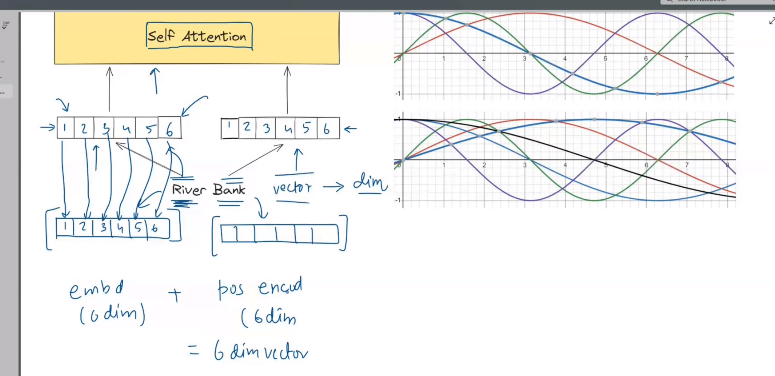 Self Attention
1 2 3 4 5 6
1 2 3 4 5 6
River Bank
vector → dim
1 2 3 4 5 6
embd + pos encod
(6 dim) (6 dim
= 6 dim vector
0 1 2 3 4 5 6 7 8
-1
1
0 1 2 3 4 5 6 7 8
-1